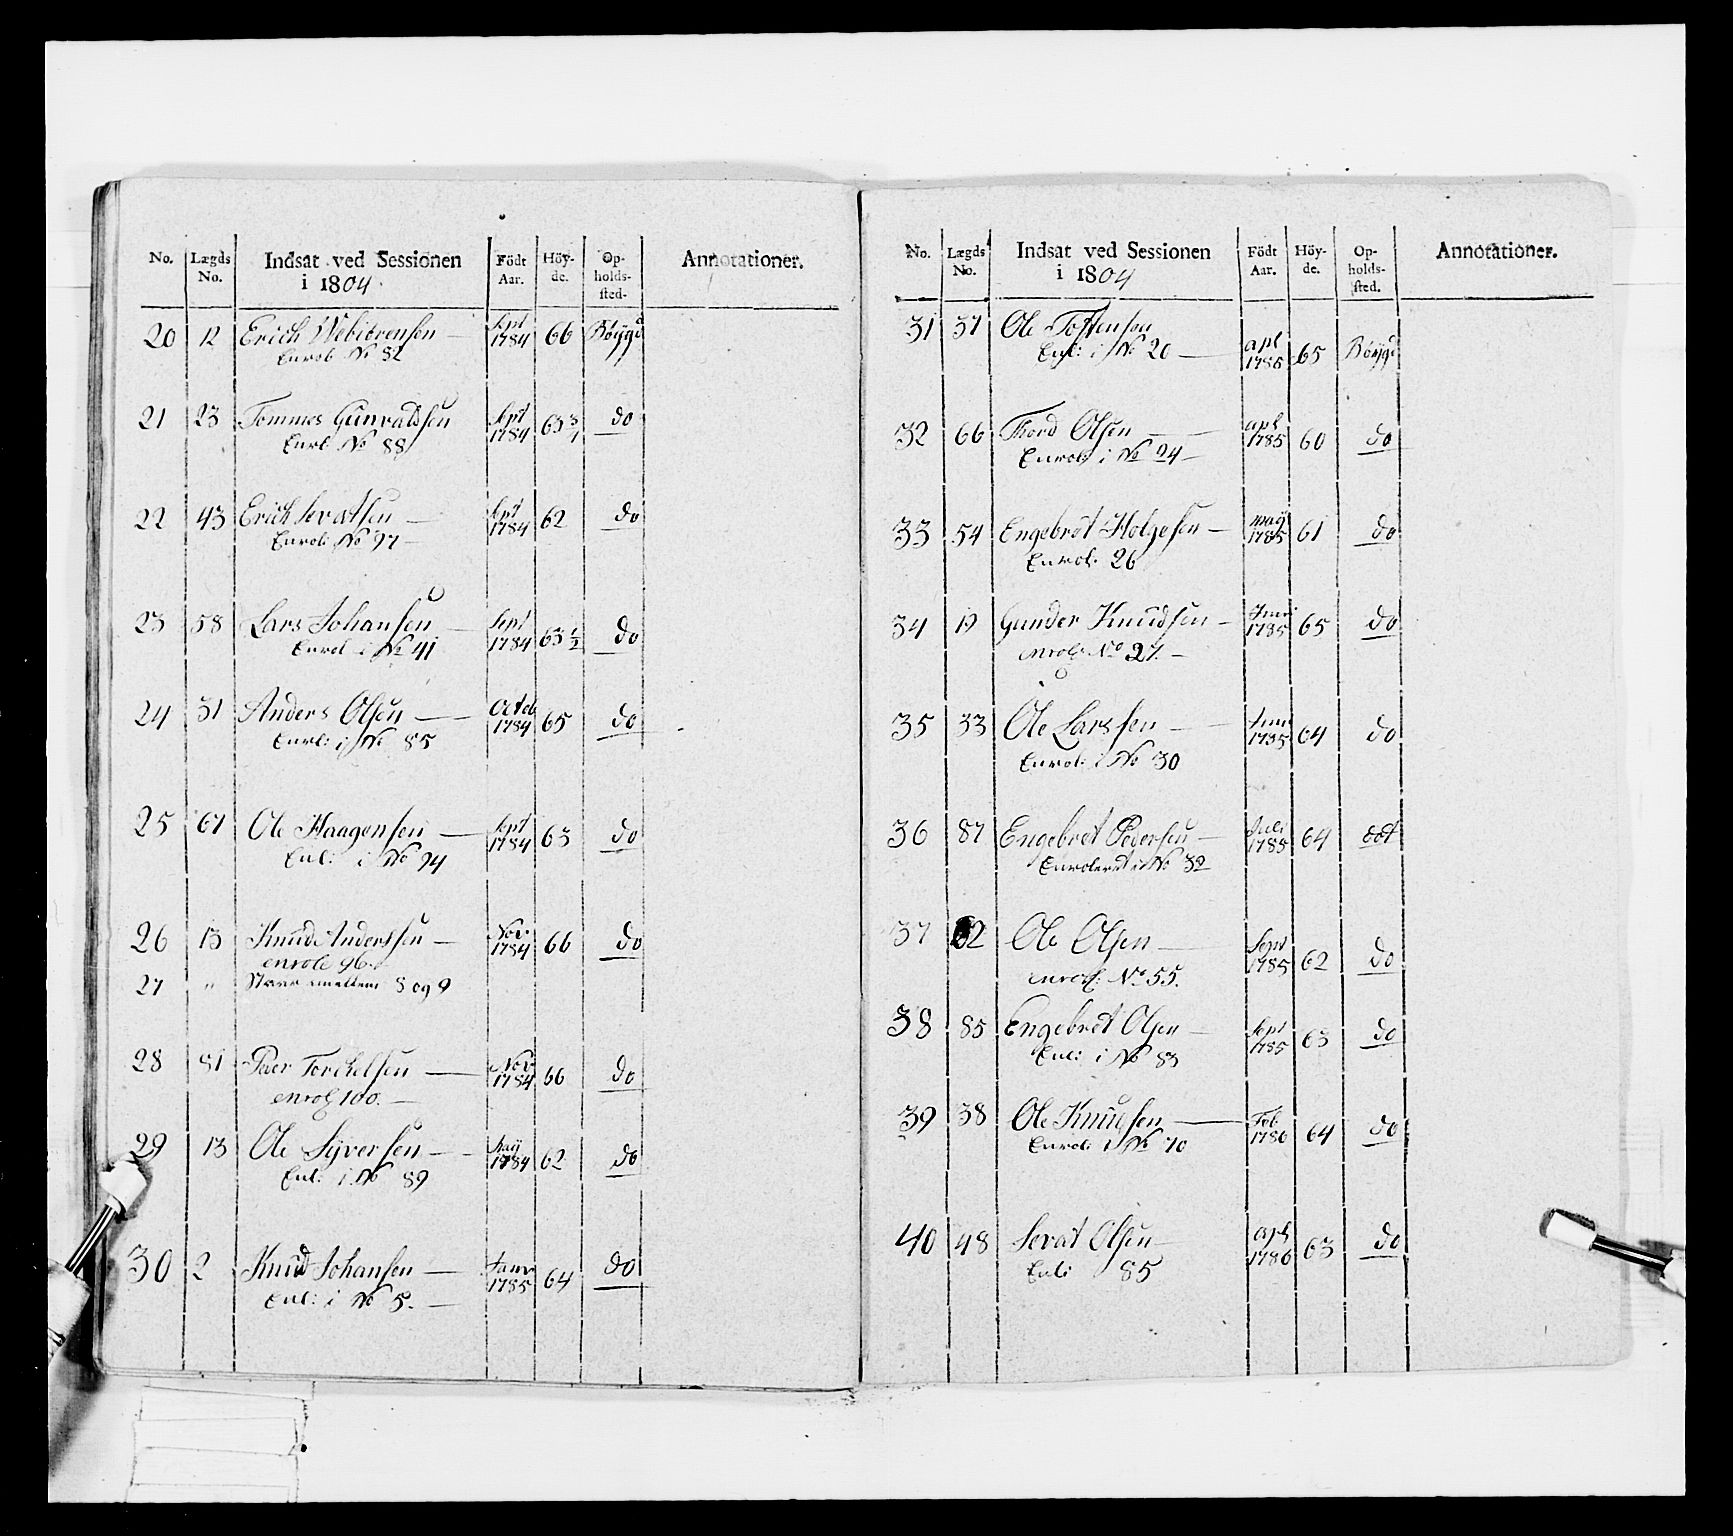 No. Lægds No. Indsat ved Sessionen i 1804. Födt Aar. Höy- de. Op- holds- sted. Annotationer.
20 12 Erich — Sept 1784 66 Böÿgd
Enrol: No 82
21 23 Tommes Gunvaldsen Sept 1784 63 3/4 do
Enrl: No 88
22 43 Erich Sevatsen — Sept 1784 62 do
Enrol: No 97
23 58 Lars Johansen — Sept 1784 63 1/2 do
Enrol i No 41
24 31 Anders Olsen — Octob 1784 65 do
Enrl: i No 85
25 67 Ole Haagensen — Sept 1784 63 do
Enl: i No 94
26 13 Knud Anderssen — Nov. 1784 66 do
enrole 96.
27 " mellem 8 og 9
28 81 Peer Torkelsen — Nov 1784 66 do
enrol 100. —
29 13 Ole Syversen — 1784 62 do
Enl: i No 89
30 2 Knud Johansen — Janv 1785 64 do
Enl: i No 5. —
No. Lægds No. Indsat ved Sessionen i 1804 Födt Aar. Höy- de. Op- holds- sted. Annotationer.
31 37 Ole Tostensen apl 1785 65 Böÿgd
Enl: i No 20 —
32 66 Thord Olsen — apl 1785 60 do
Enrol: i No 24 —
33 54 Engebret Holgesen — maÿ 1785 61 do
Enrol: 26
34 19 Gunder Knudsen — Juni 1785 65 do
enrol: No 27. —
35 33 Ole Larssen — Juni 1785 64 do
Enrol: i No 30
36 87 Engebret Pedersen — Juli 1785 64 dot
Enroleret i No 32
37 62 Ole Olsen — Sept 1785 62 do
enrol: No 55.
38 85 Engebret Olsen — Sept 1785 63 do
Enl: i No 83
39 38 Ole Knudsen — Feb 1786 64 do
Enrol: i No 70
40 48 Sevat Olsen — apl 1786 63 do
Enl: 85